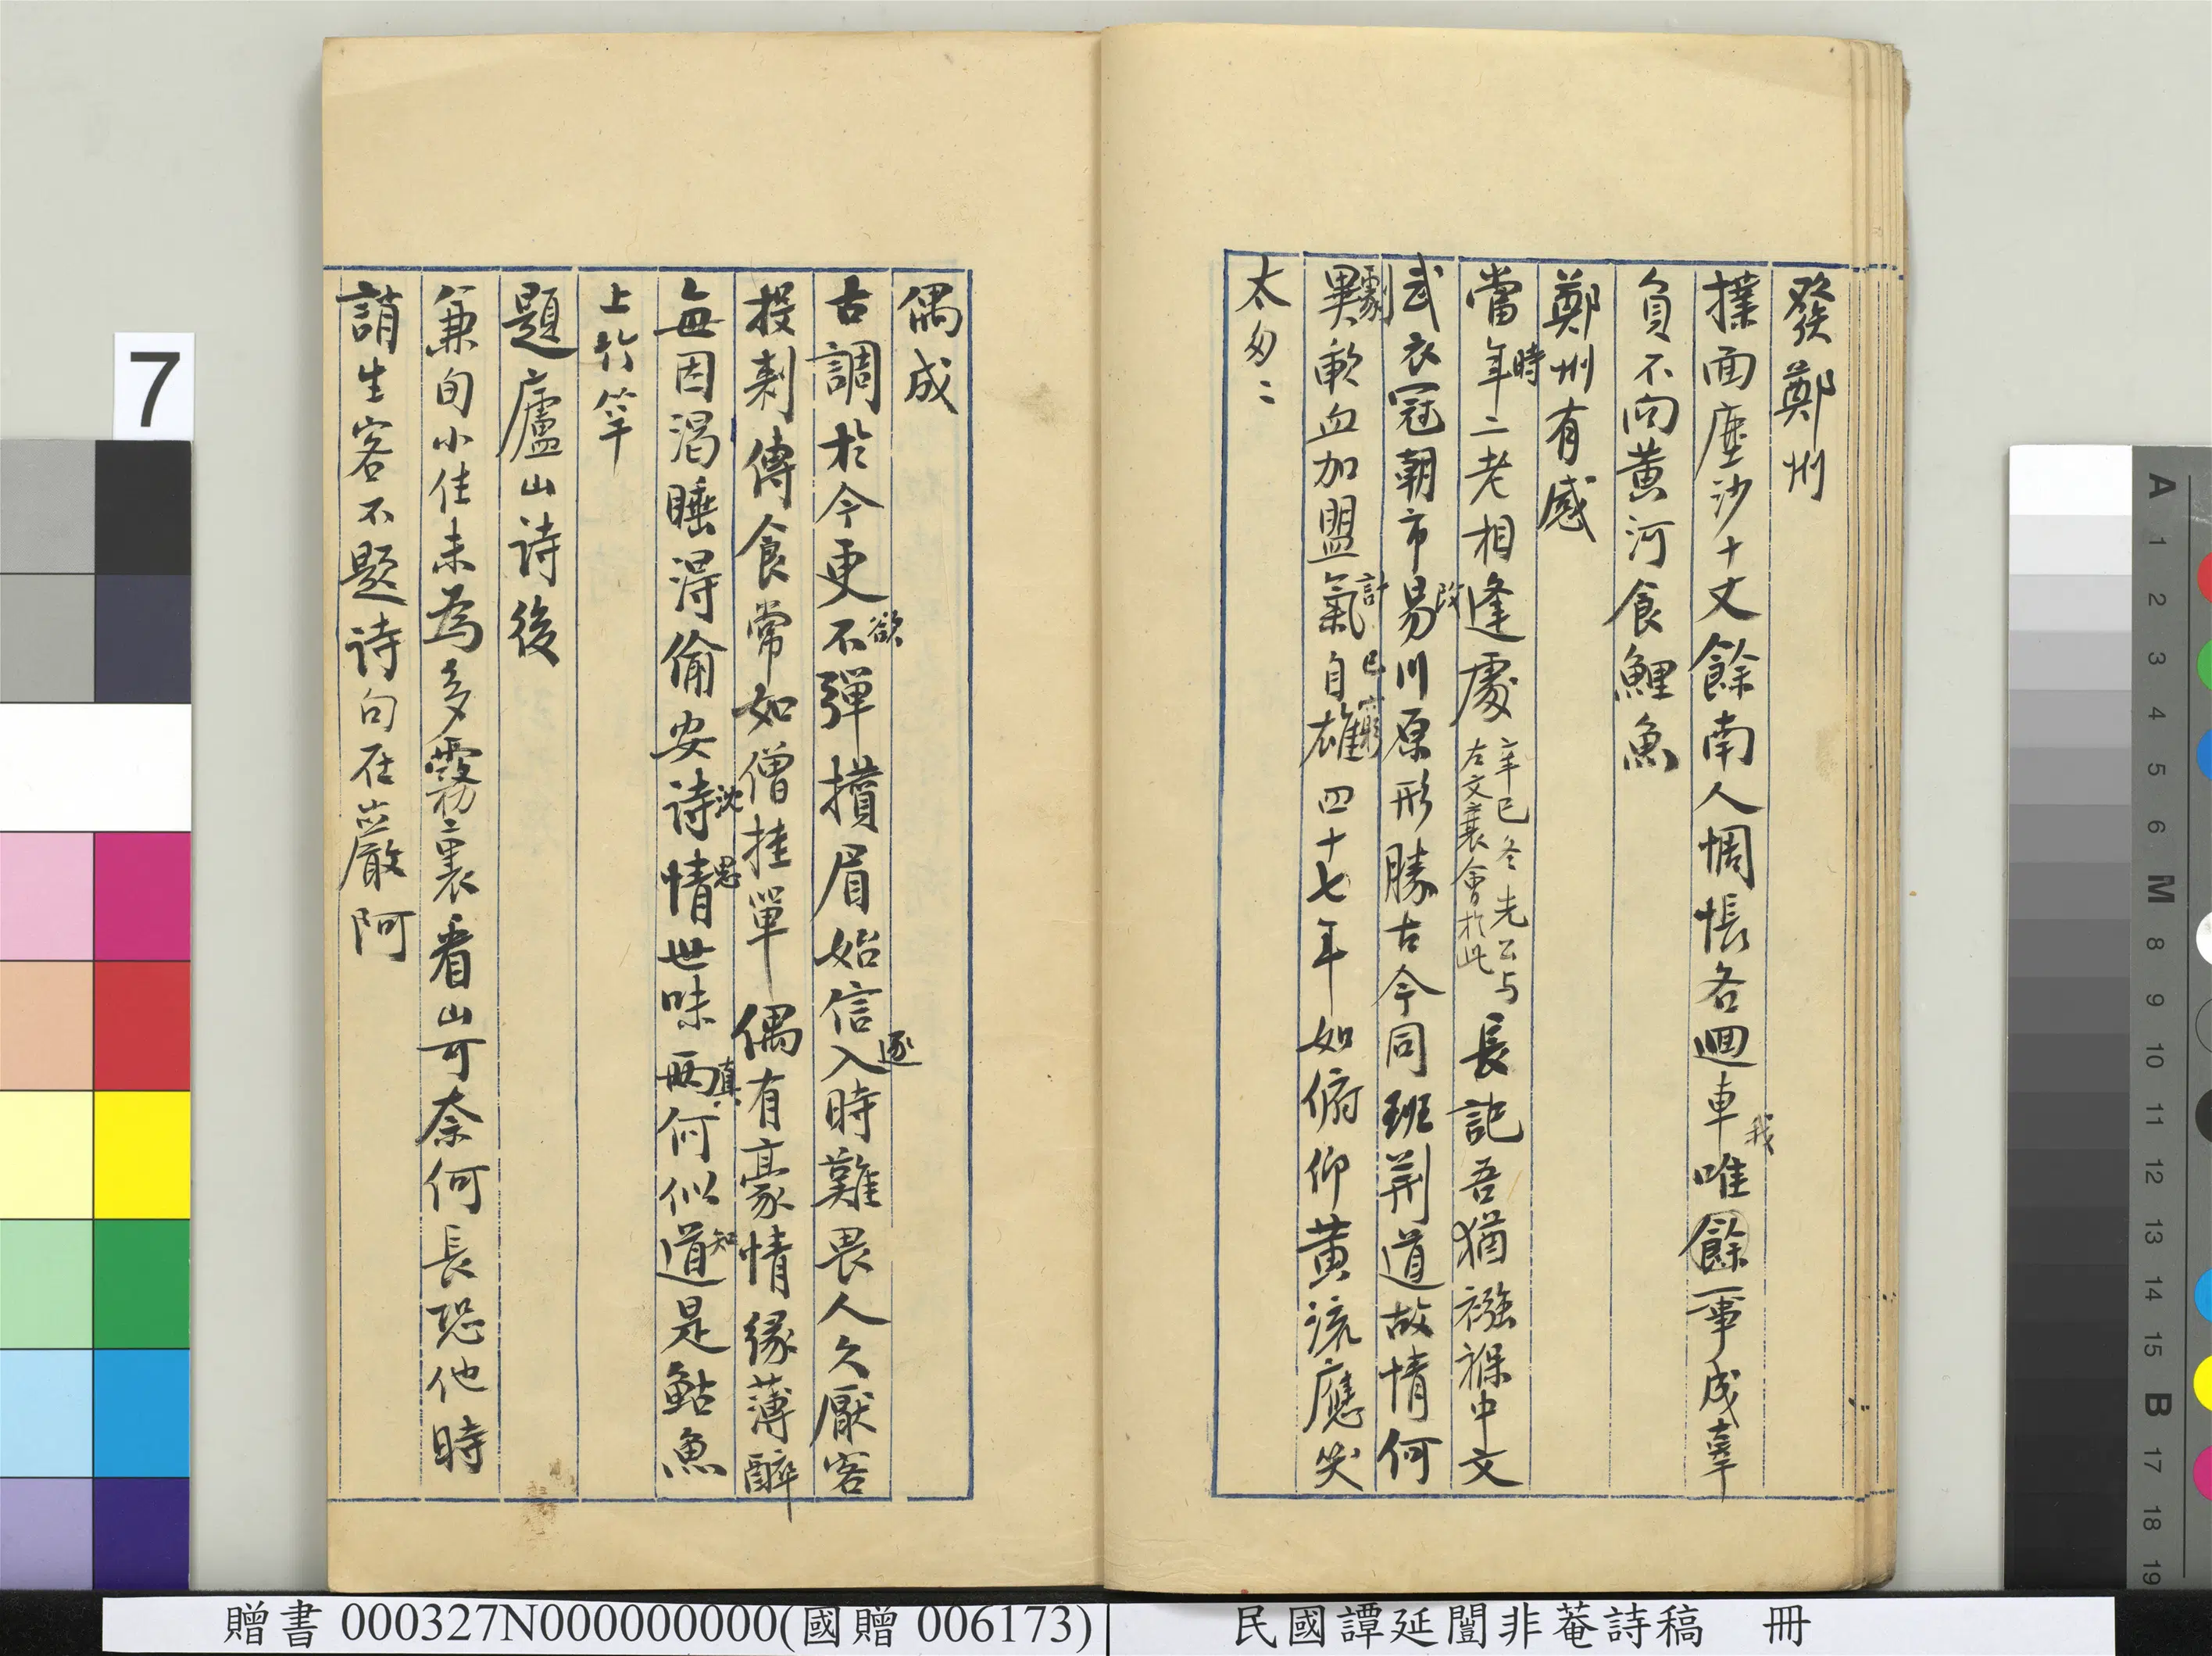 發鄭州
撲面塵沙十丈餘南人惆悵各迴車唯餘一事成辜
我
負不向黃河食鯉魚
鄭州有感
當年二老相逢處辛巳冬先公与左文襄會於此長記吾猶襁褓中文
時
武衣冠朝市易川原形勝古今同班荆道故情何
改
異歃血加盟氣自雄四十七年如俯仰黃流應笑
劇
計
已窮
太匆二
偶成
古調於今更不彈攢眉始信入時難畏人久厭客
欲
逐
投刺傳食常如僧挂單偶有豪情緣薄醉
每因渴睡淂偷安詩情世味兩何似道是鮎魚
沈
思
真
知
上竹竿
題廬山詩後
兼旬小住未為多霧裏看山可奈何長恐他時
誚生客不題詩句在巖阿
7
贈書 000327N000000000(國贈 006173)
民國譚延闓非菴詩稿 冊
A 1 2 3 4 5 6 M 8 9 10 11 12 13 14 15 B 17 18 19